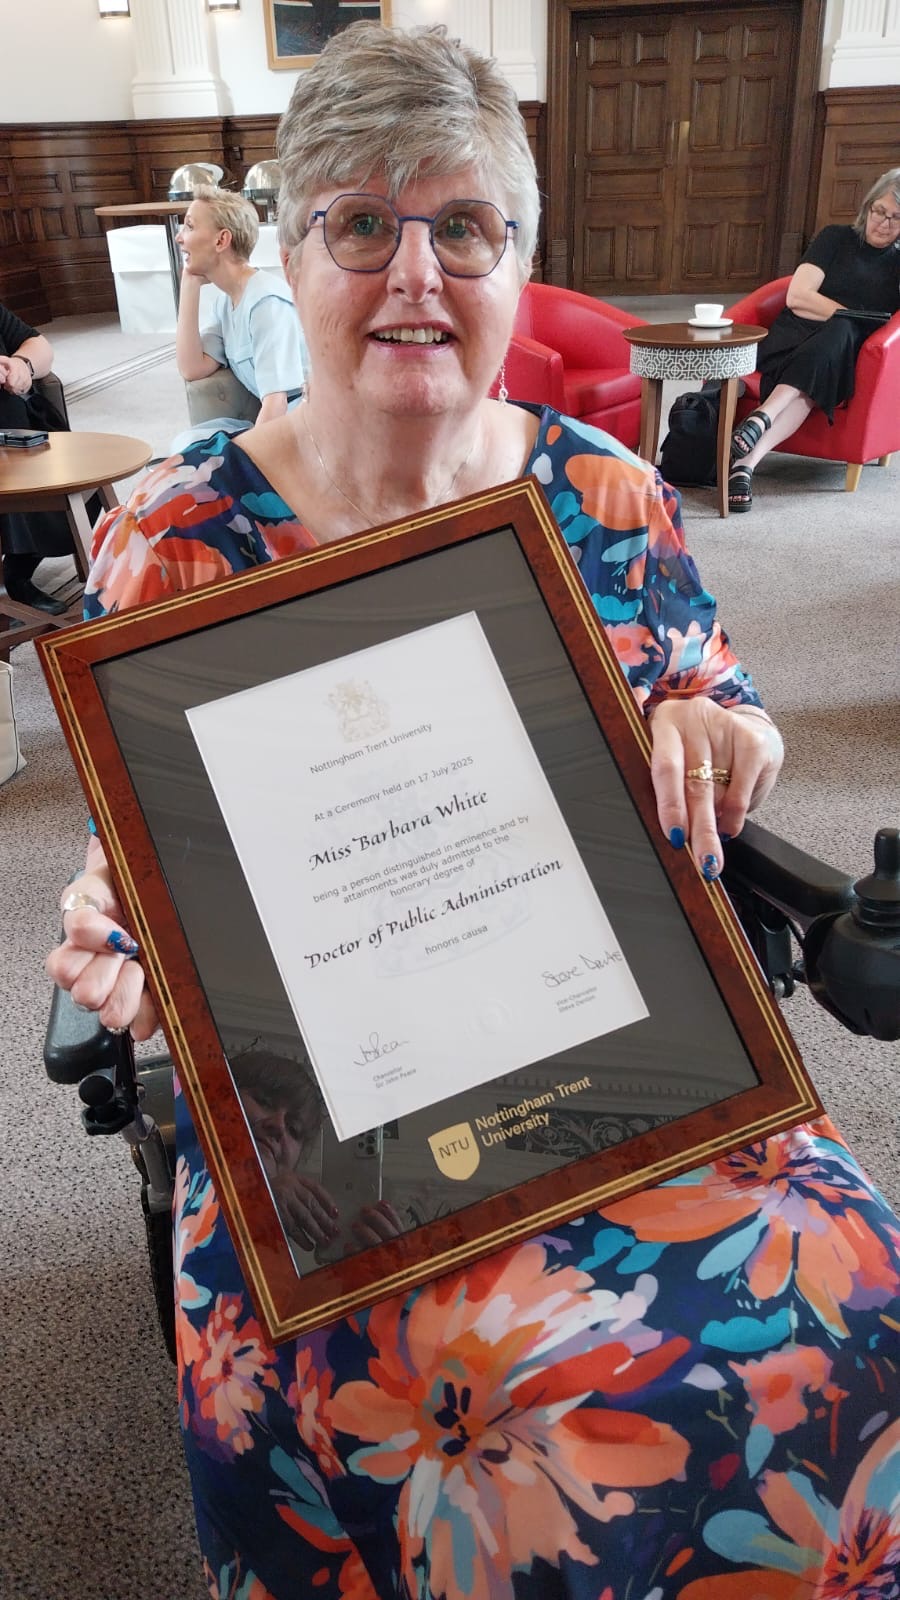 Nottingham Trent University
At a Ceremony held on 17 July 2025
Miss Barbara White
being a person distinguished in eminence and by
attainments was duly admitted to the
honorary degree of
Doctor of Public Administration
honoris causa
Vice-Chancellor
Steve Denton
Chancellor
Sir John Peace
NTU
Nottingham Trent
University